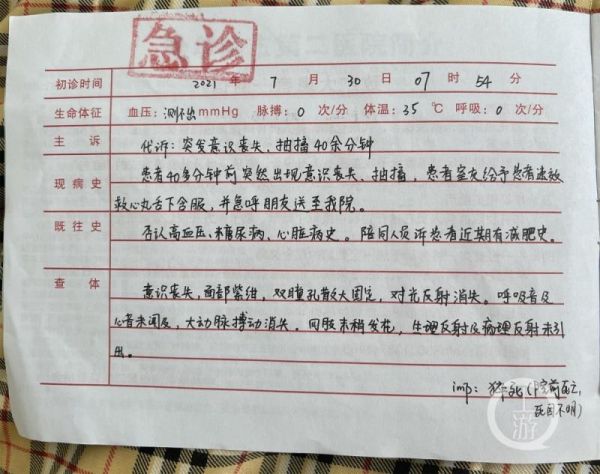 急诊
初诊时间 2021 年 7 月 30 日 07 时 54 分
生命体征 血压: 测不出 mmHg 脉搏: 0 次/分 体温: 35 ℃ 呼吸: 0 次/分
主诉 代诉: 突发意识丧失、抽搐40余分钟
现病史 患者40多分钟前突然出现意识丧失、抽搐,患者室友给予患者速效
救心丸舌下含服,并急呼朋友送至我院。
既往史 否认高血压、糖尿病、心脏病史。陪同人员诉患者近期有减肥史。
查体 意识丧失,面部紫绀,双瞳孔散大固定,对光反射消失。呼吸音及
心音未闻及,大动脉搏动消失。四肢末稍发花,生理反射及病理反射未引
出。
imp: 猝死(院前死亡,
死因不明)
上游